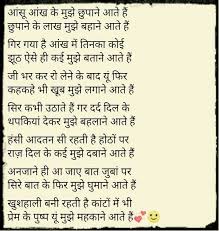 आंसू आंख के मुझे छुपाने आते हैं
छुपाने के लाख मुझे बहाने आते हैं
गिर गया है आंख में तिनका कोई
झूठ ऐसे ही कई मुझे बताने आते हैं
जी भर कर रो लेने के बाद यूं फिर
कहकहे भी खूब मुझे लगाने आते हैं
सिर कभी उठाते हैं गर दर्द दिल के
थपकियां देकर मुझे बहलाने आते हैं
हंसी आदतन सी रहती है होठों पर
राज़ दिल के कई मुझे दबाने आते हैं
अनजाने ही आ जाए बात जुबां पर
सिरे बात के फिर मुझे घुमाने आते हैं
खुशहाली बनी रहती है कांटों में भी
प्रेम के पुष्प यूं मुझे महकाने आते हैं💕🙂